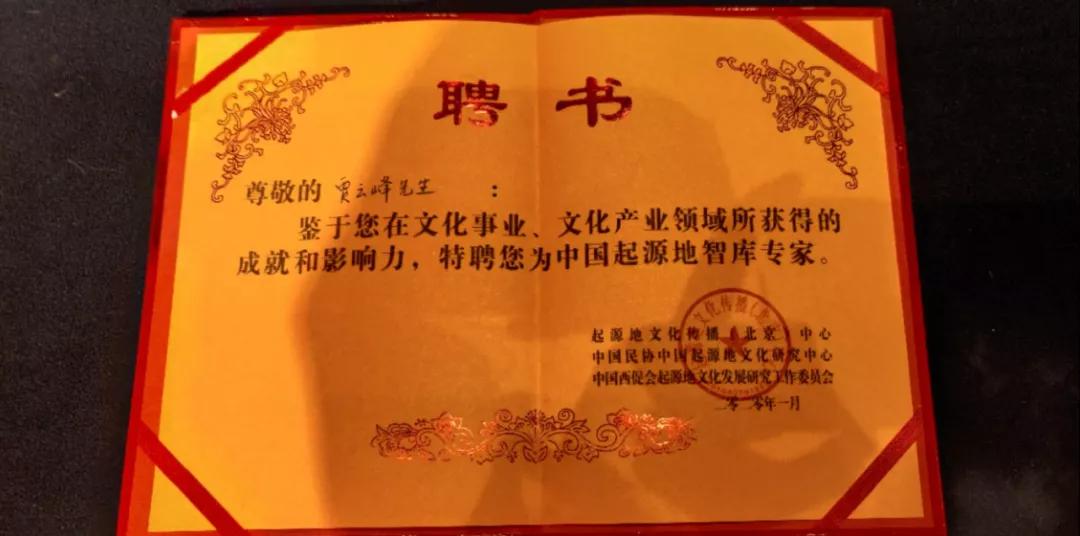 聘书
尊敬的 贾云峰先生 :
鉴于您在文化事业、文化产业领域所获得的
成就和影响力，特聘您为中国起源地智库专家。
起源地文化传播（北京）中心
中国民协中国起源地文化研究中心
中国西促会起源地文化发展研究工作委员会
二零二零年一月
文化传播（北